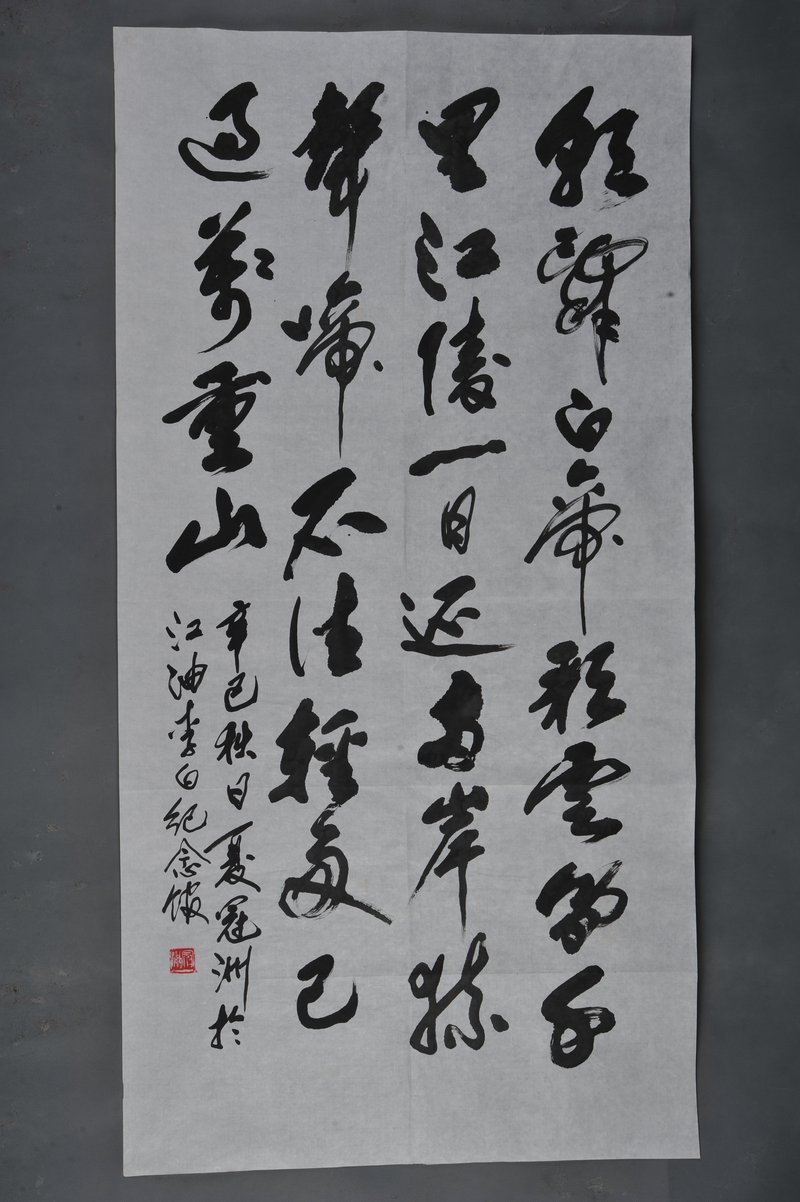 朝辭白帝彩雲間千
里江陵一日還兩岸猿
聲啼不住輕舟已
過萬重山
辛巳秋日夏冠洲於
江油李白紀念館